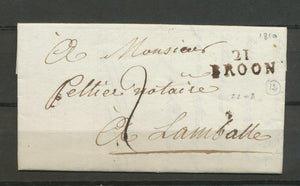 1810
à Monsieur
21
BROON
Pellier notaire
22-8
12
2
à Lamballe